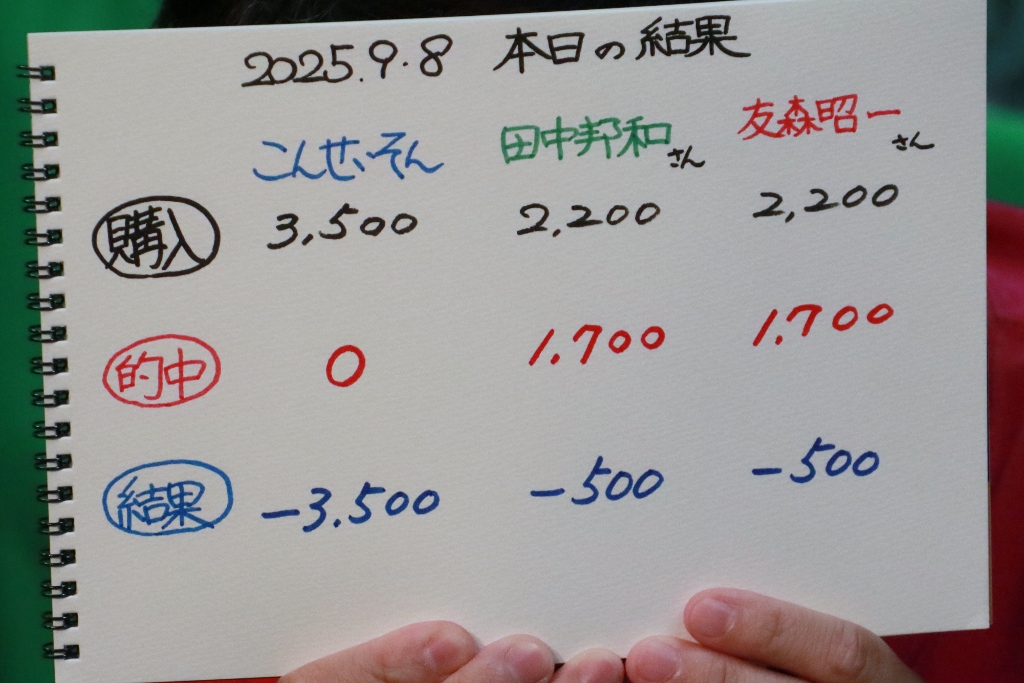 2025.9.8 本日の結果
こんせいそん 田中邦和さん 友森昭一さん
購入 3,500 2,200 2,200
的中 0 1.700 1.700
結果 -3.500 -500 -500